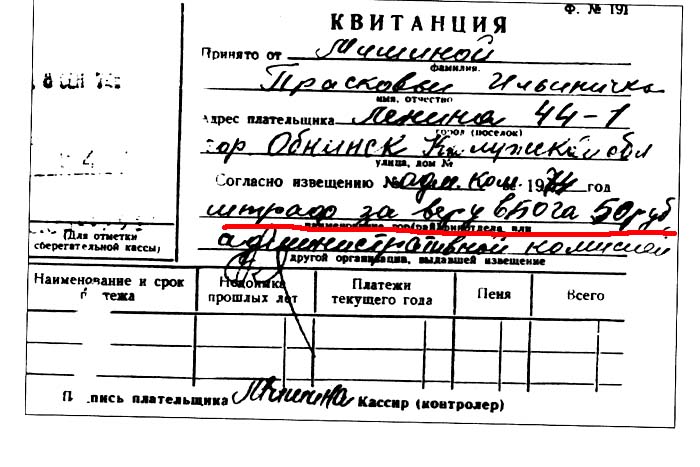 Ф. № 191
КВИТАНЦИЯ
Принято от Мишиной
фамилия.
Прасковьи Ильиничны
имя, отчество
Адрес плательщика Ленина 44-1
город (поселок)
гор Обнинск Калужской обл
улица, дом №
Согласно извещению № адм. ком. 1974 год
штраф за веру в Бога 50 руб
административной комиссией
другой организации, выдавшей извещение
8 СЕН 74
(Для отметки
сберегательной кассы)
Наименование и срок платежа
Недоимка прошлых лет
Платежи текущего года
Пеня
Всего
Подпись плательщика Мишина Кассир (контролер)